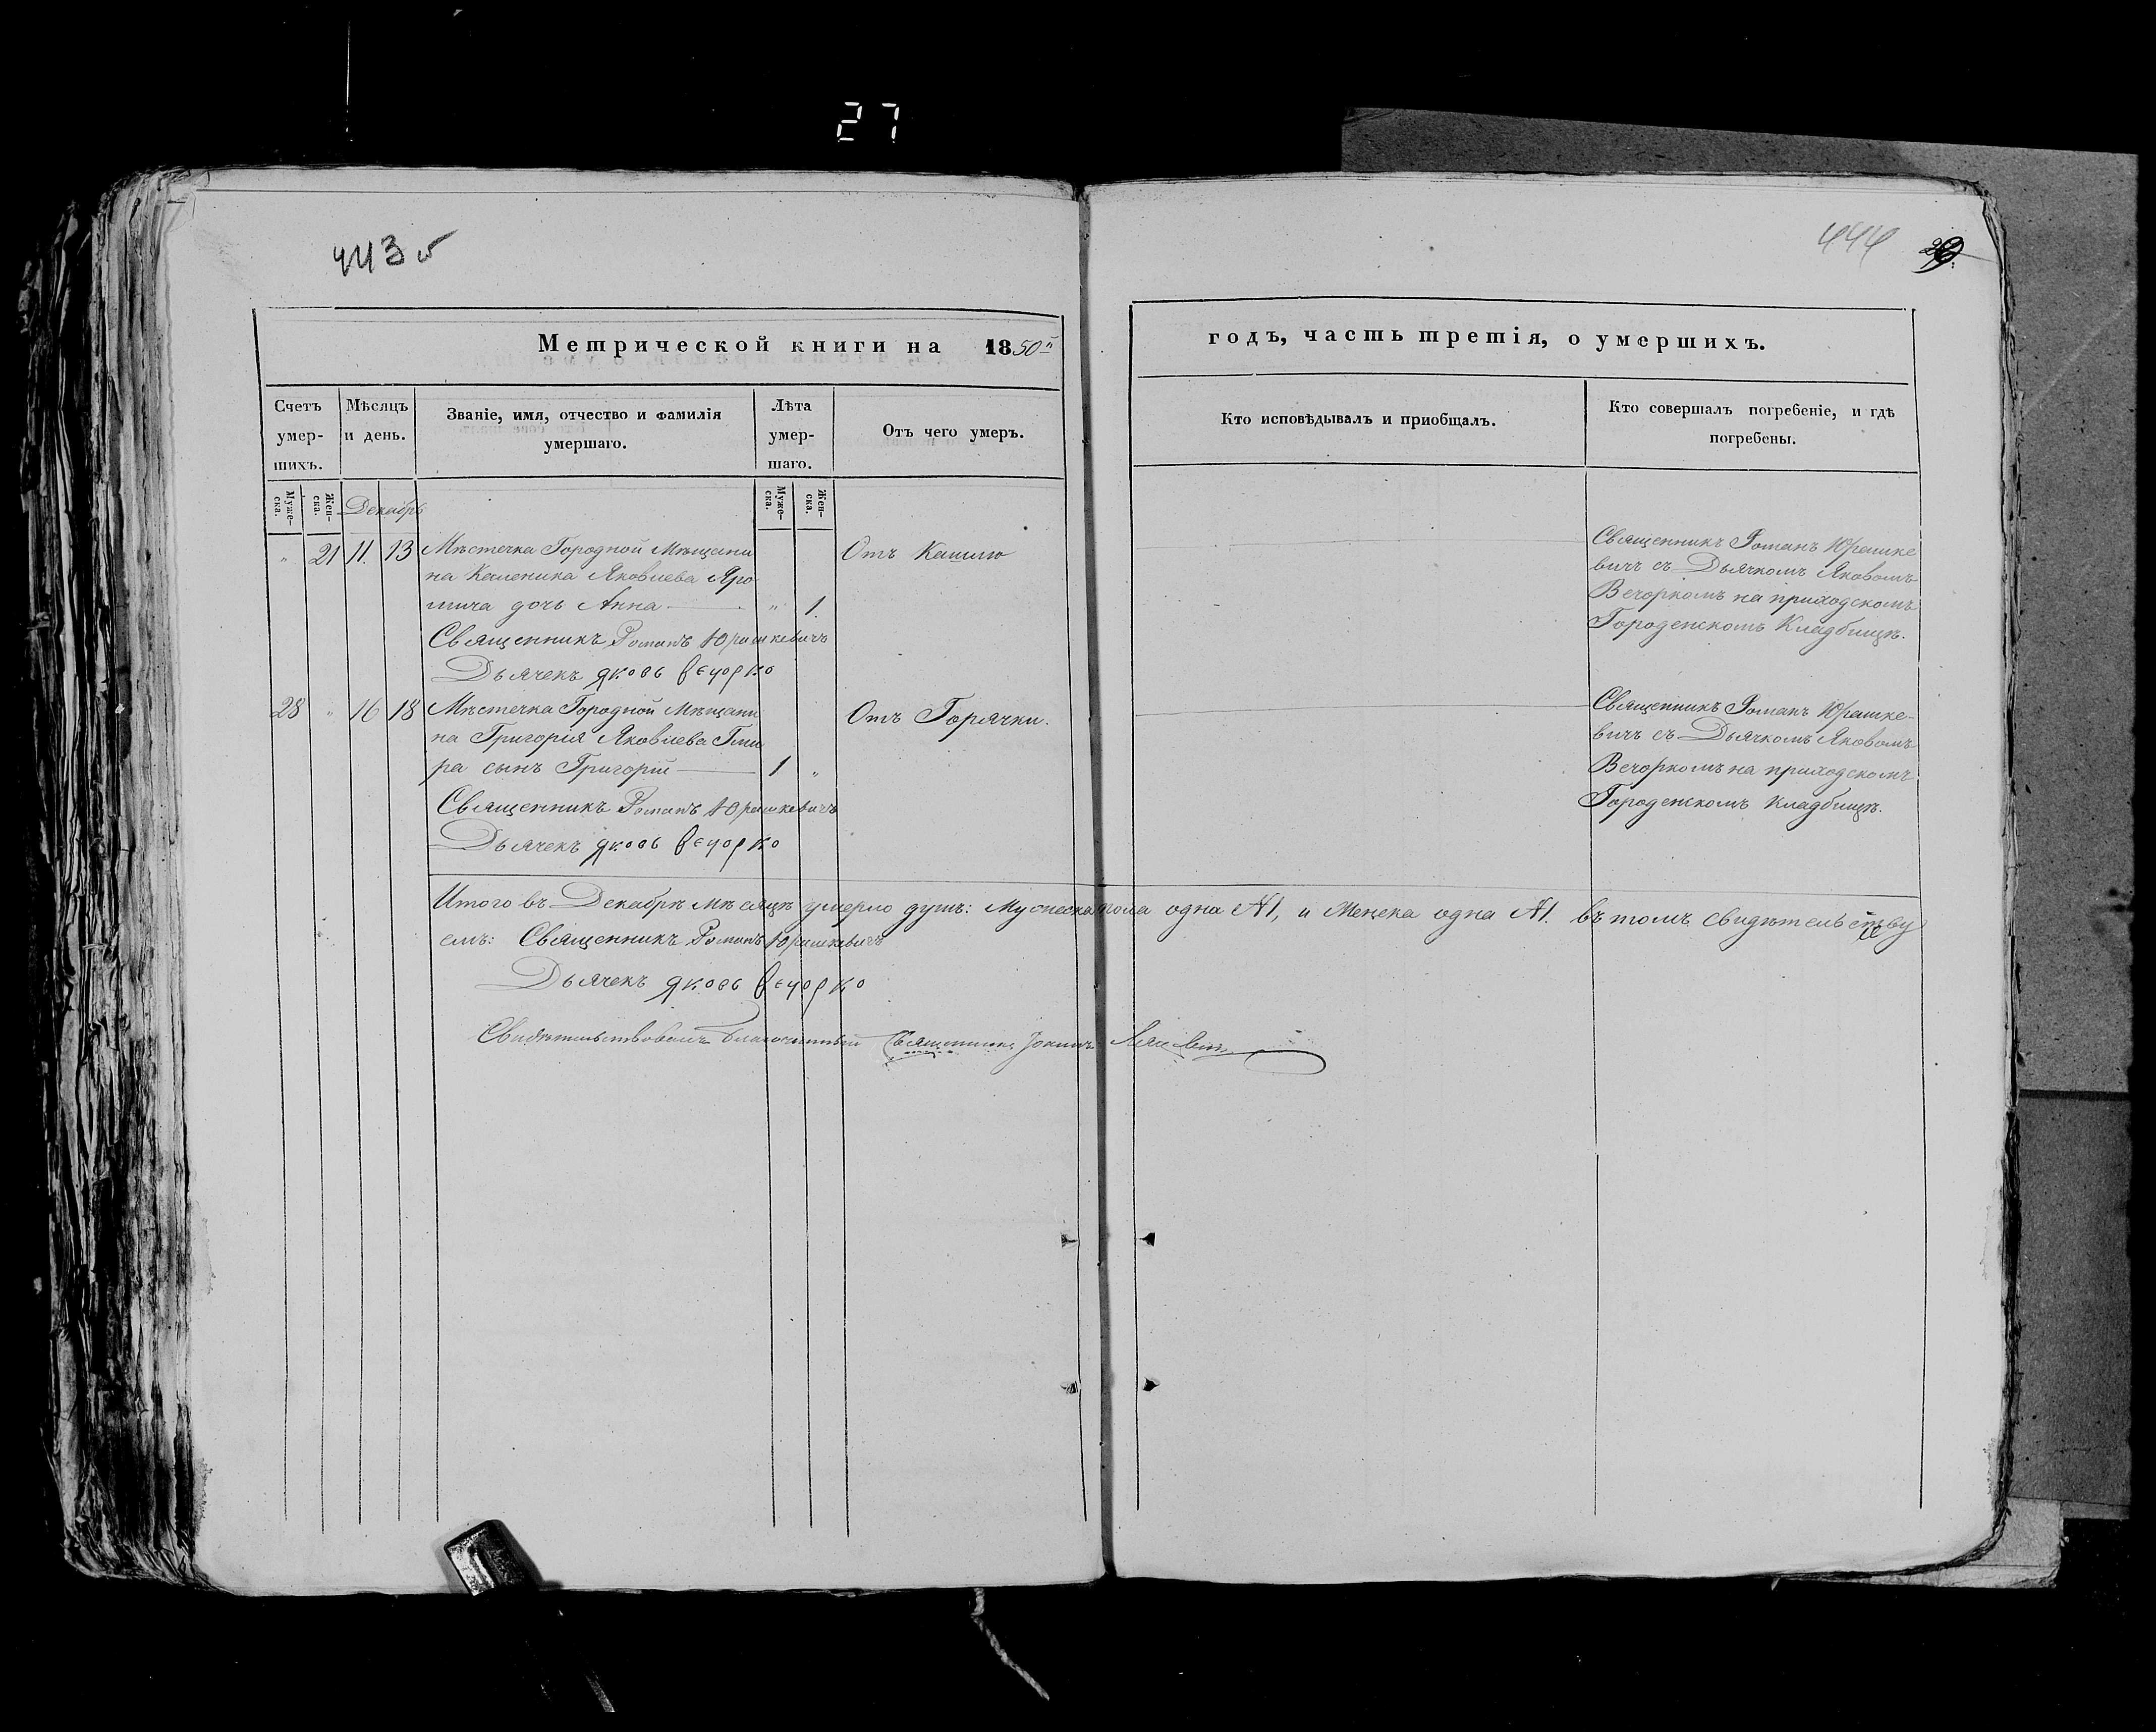 27
443 об
444 29
Метрической книги на 1850й
годъ, часть третія, о умершихъ.
Счетъ умер-шихъ.
Мѣсяцъ и день.
Званіе, имя, отчество и фамилія умершаго.
Лѣта умер-шаго.
Отъ чего умеръ.
Кто исповѣдывалъ и пріобщалъ.
Кто совершалъ погребеніе, и гдѣ погребены.
Муже-ска. Жен-ска. Декабрь Муже-ска. Жен-ска.
" 21 11. 13 Мѣстечка Городной Мѣщани Отъ Кашлю
на Каленика Яковлева Яро
шича дочь Анна " 1
Священникъ Романъ Юрашкевичъ
Дьячекъ Яковъ Вечорко
Священникъ Романъ Юрашке
вичъ съ Дьячкомъ Яковомъ
Вечоркомъ на приходскомъ
Городенскомъ Кладбищѣ.
28 " 16 18 Мѣстечка Городной Мѣщани Отъ Горячки.
на Григорія Яковлева
ра сынъ Григорій 1 "
Священникъ Романъ Юрашкевичъ
Дьячекъ Яковъ Вечорко
Священникъ Романъ Юрашке-
вичъ съ Дьячкомъ Яковомъ
Вечоркомъ на приходскомъ
Городенскомъ Кладбищѣ.
Итого въ Декабрѣ Мѣсяцѣ умерло душъ: Мужеска пола одна №1, и Женска одна №1. въ томъ свидѣтельству
емъ: Священникъ Романъ Юрашкевичъ
Дьячекъ Яковъ Вечорко
Свидѣтельствовалъ Благочинный Священникъ